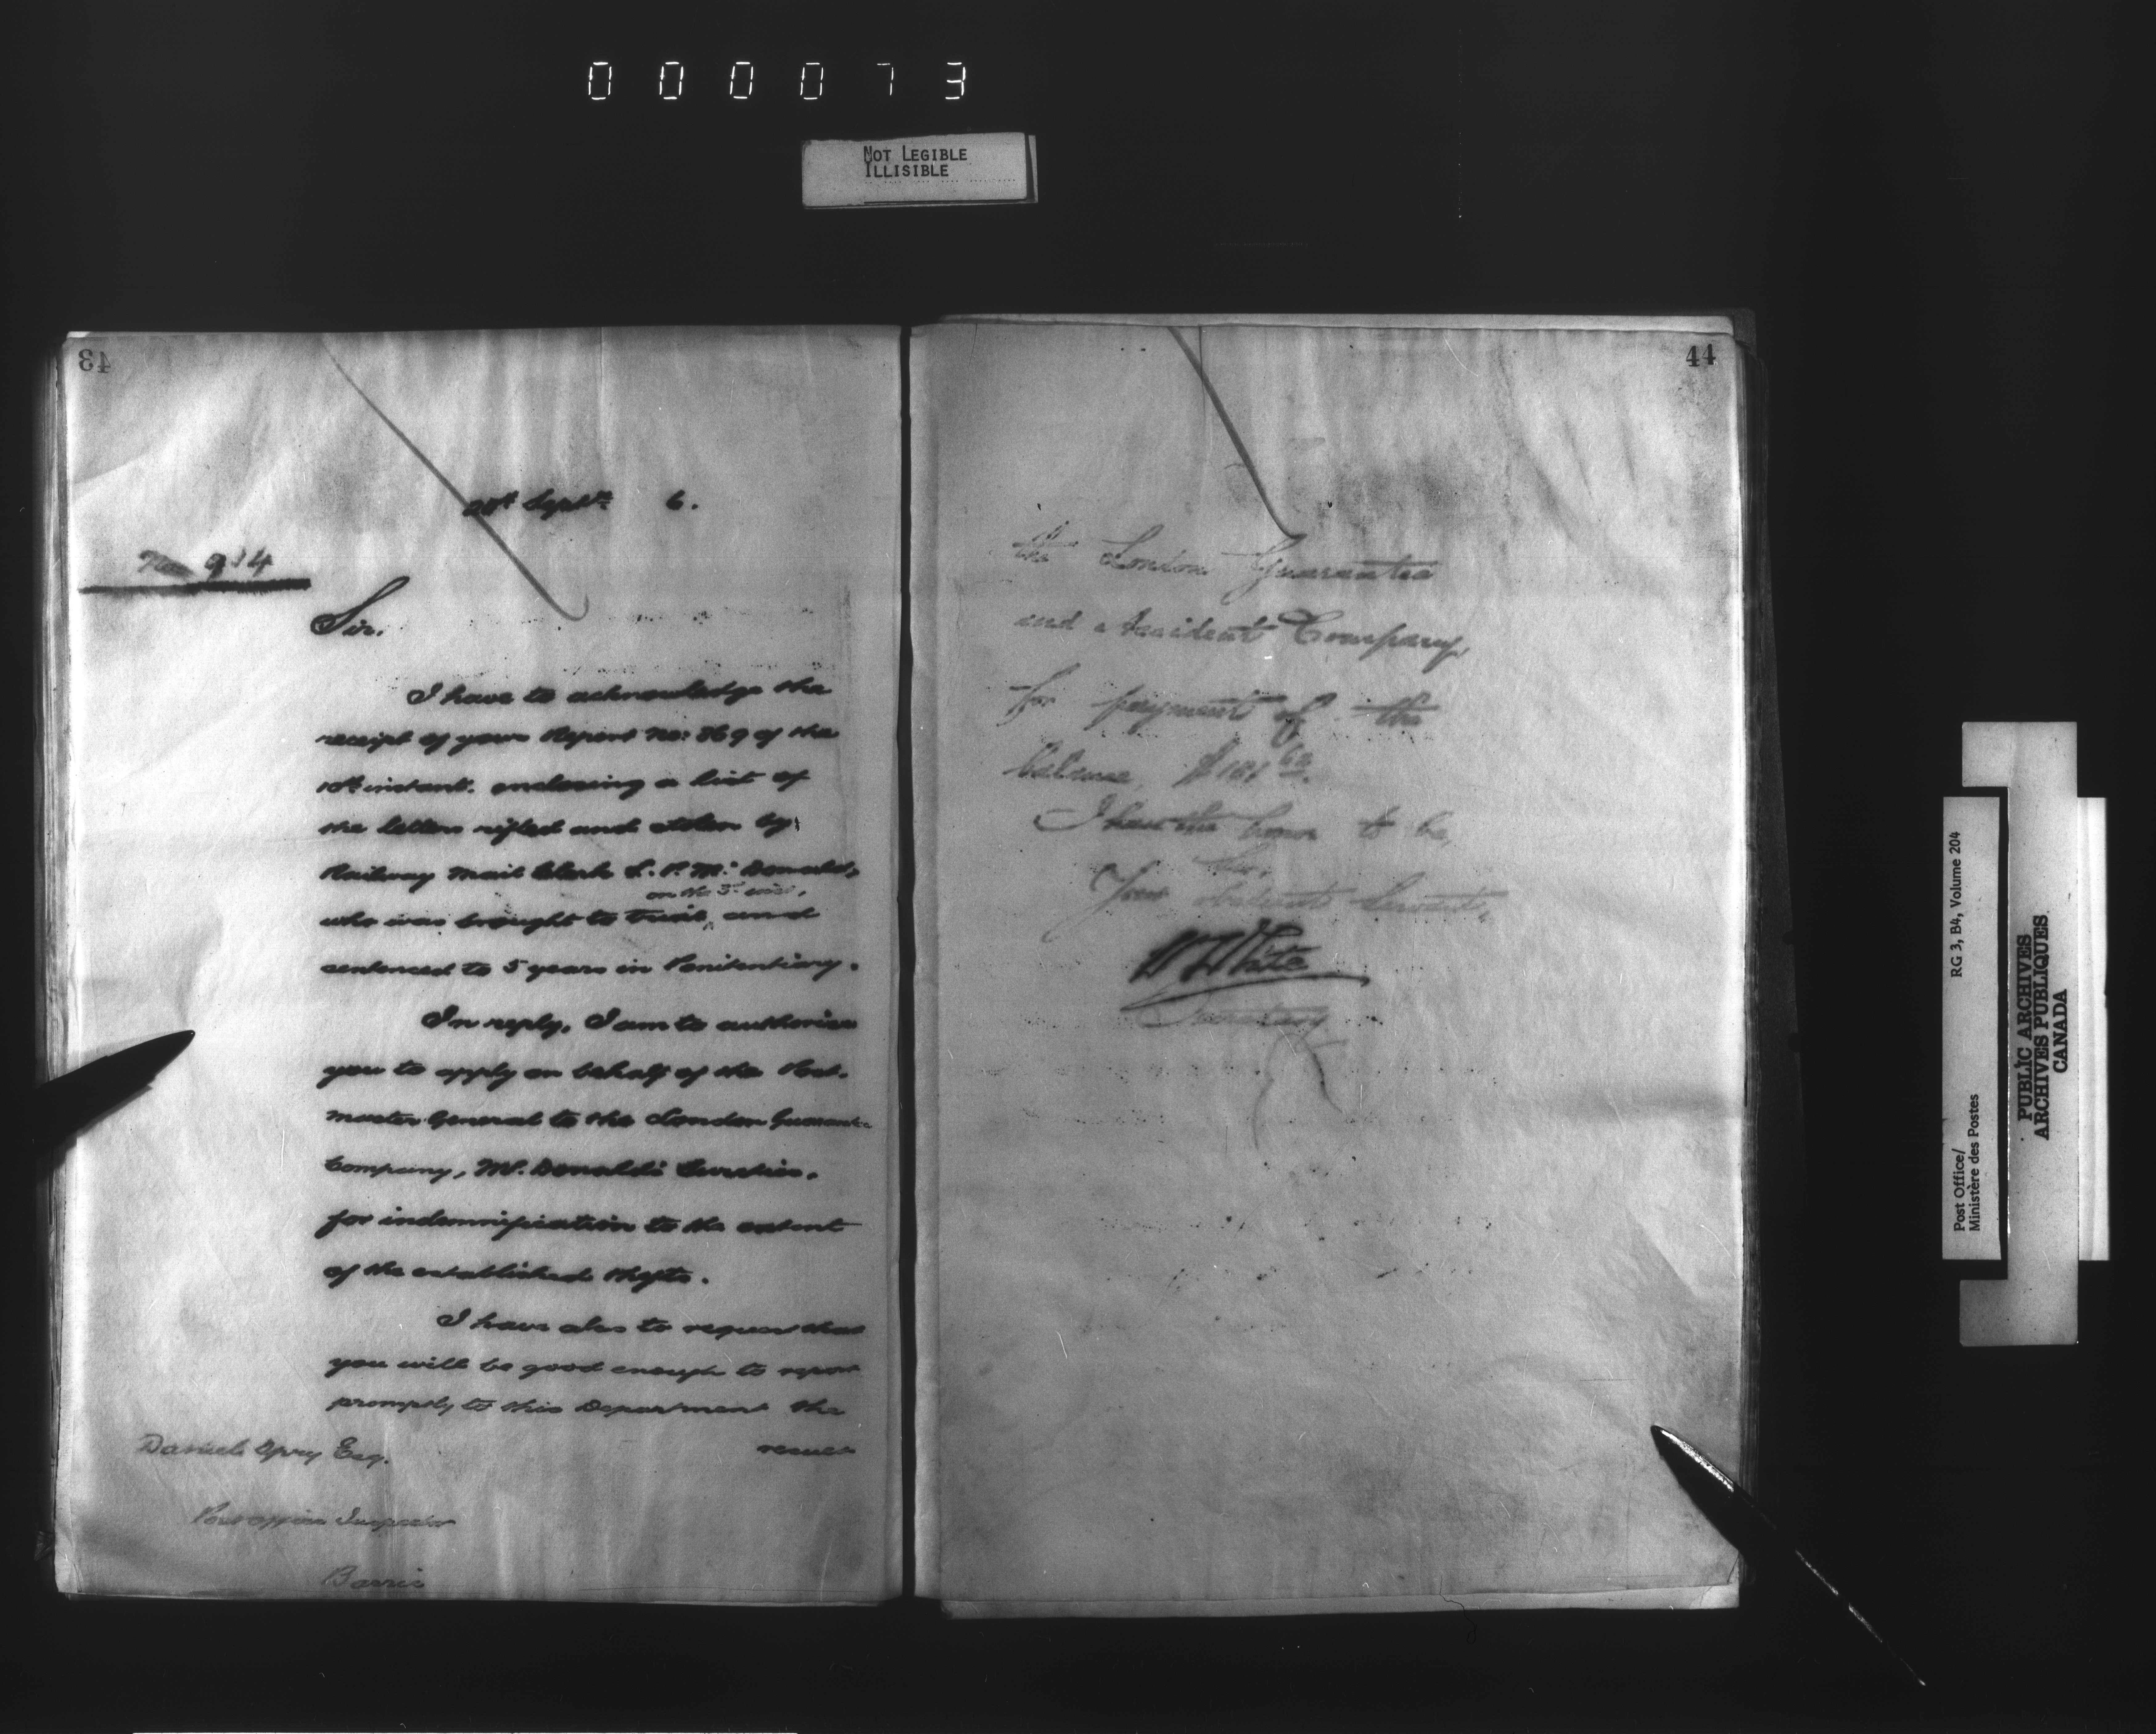 000073
NOT LEGIBLE
ILLISIBLE
43
Septr. 6.
No 914
Sir.
I have to acknowledge the
receipt of your Report No: 369 of the
10th instant. enclosing a list of
the letters rifled and stolen by
Railway Mail Clerk L. P. McDonald,
on the 3rd inst,
who was brought to trial, and
sentenced to 5 years in Penitentiary.
In reply, I am to authorise
you to apply on behalf of the Post-
master General to the London Guarantee
Company, McDonald's Sureties.
for indemnification to the extent
of the established thefts.
I have also to request that
you will be good enough to report
promptly to this Department the
result
Daniel Spry Esq.
Post Office Inspector
Barrie
44
the London Guarantee
and Accident Company,
for payment of the
balance, $181 62.
I have the honor to be,
Sir,
Your obedient Servant,
W White
Secretary
Post Office/
Ministère des Postes
RG 3, B4, Volume 204
PUBLIC ARCHIVES
ARCHIVES PUBLIQUES
CANADA